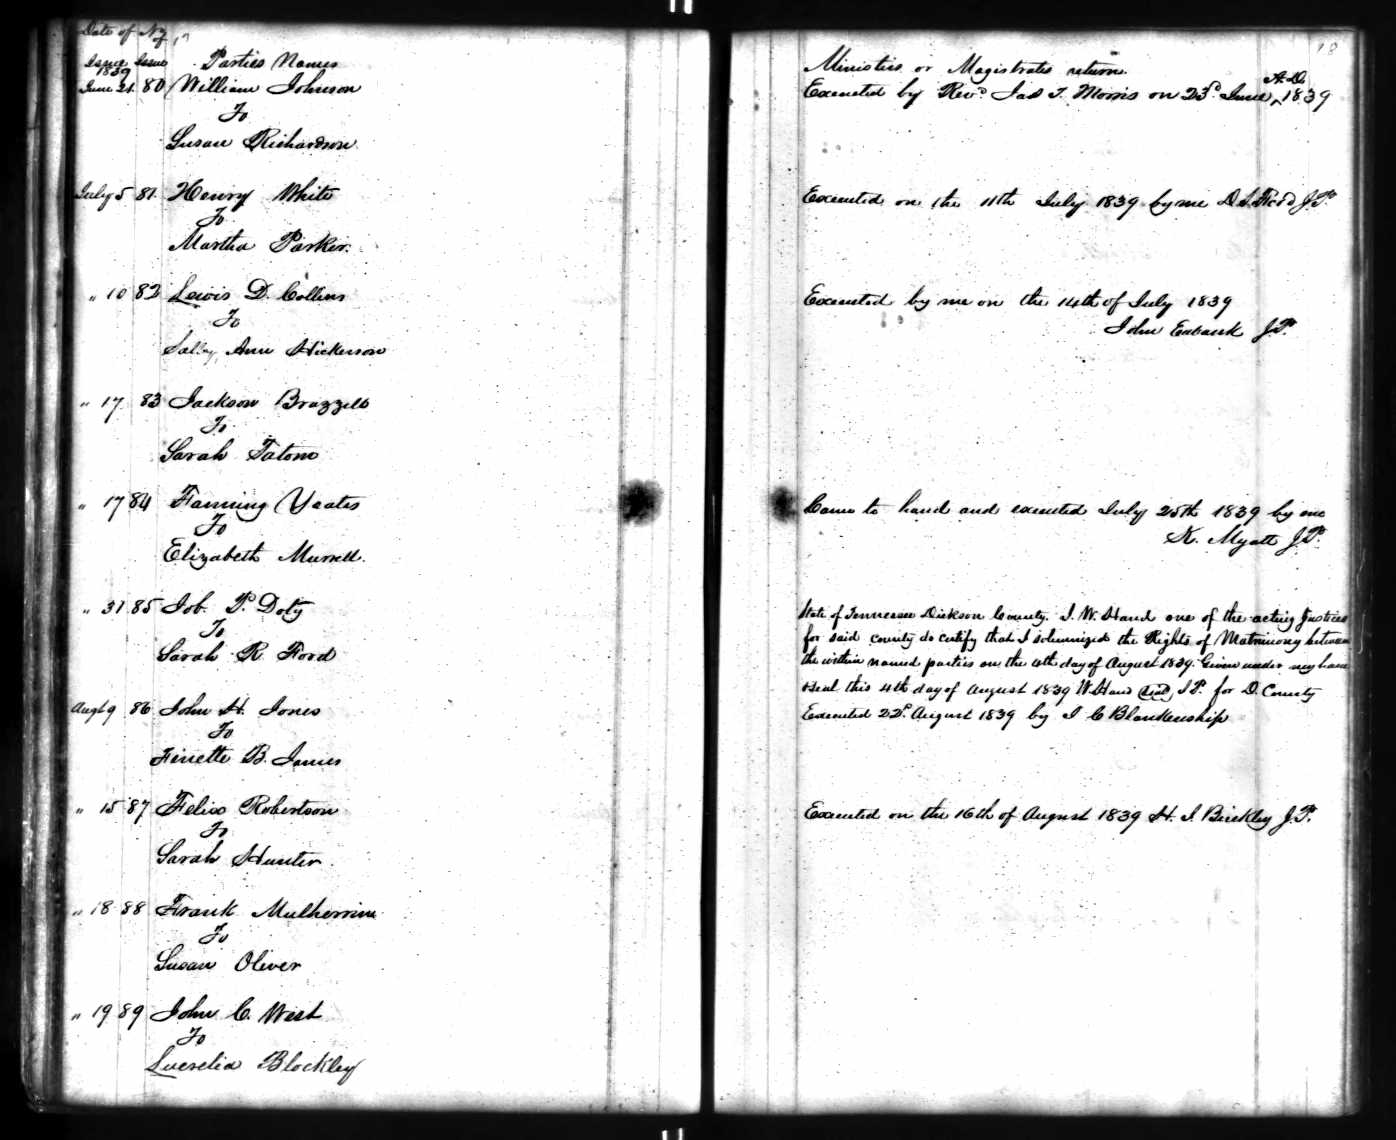 Date of No of
Issue Issue Parties Names
1839
June 21. 80 William Johnson
To
Susan Richardson
July 5 81. Henry White
To
Martha Parker.
" 10 82 Lewis D. Collins
To
Sally Ann Hickerson
" 17 83 Jackson Brazzell
To
Sarah Tatom
" 17 84 Fanning Yeates
To
Elizabeth Murrell.
" 31 85 Job. P. Doty
To
Sarah R Ford
Augt 9 86 John H. Jones
To
Finette B. James
" 15 87 Felix Robertson
To
Sarah Hunter
" 18 88 Frank Mulherrin
To
Susan Oliver
" 19 89 John C. West
To
Lucretia Blockley
18
Ministers or Magistrates return.
Executed by Revd. Jas T. Morris on 23d. June, A.D. 1839
Executed on the 11th July 1839 by me D. S. Ford J.P.
Executed by me on the 14th of July 1839
John Eubank J.P.
Came to hand and executed July 25th 1839 by me
K. Myatt J.P.
State of Tennessee Dickson County. I. W. Hand one of the acting Justices
for said county do certify that I solemnized the Rights of Matrimony between
the within named parties on the 4th day of August 1839. Given under my hand
& seal this 4th day of August 1839 W. Hand (seal) J.P. for D. County
Executed 22d. August 1839 by J C Blankenship
Executed on the 16th of August 1839 H. J. Binkley J.P.